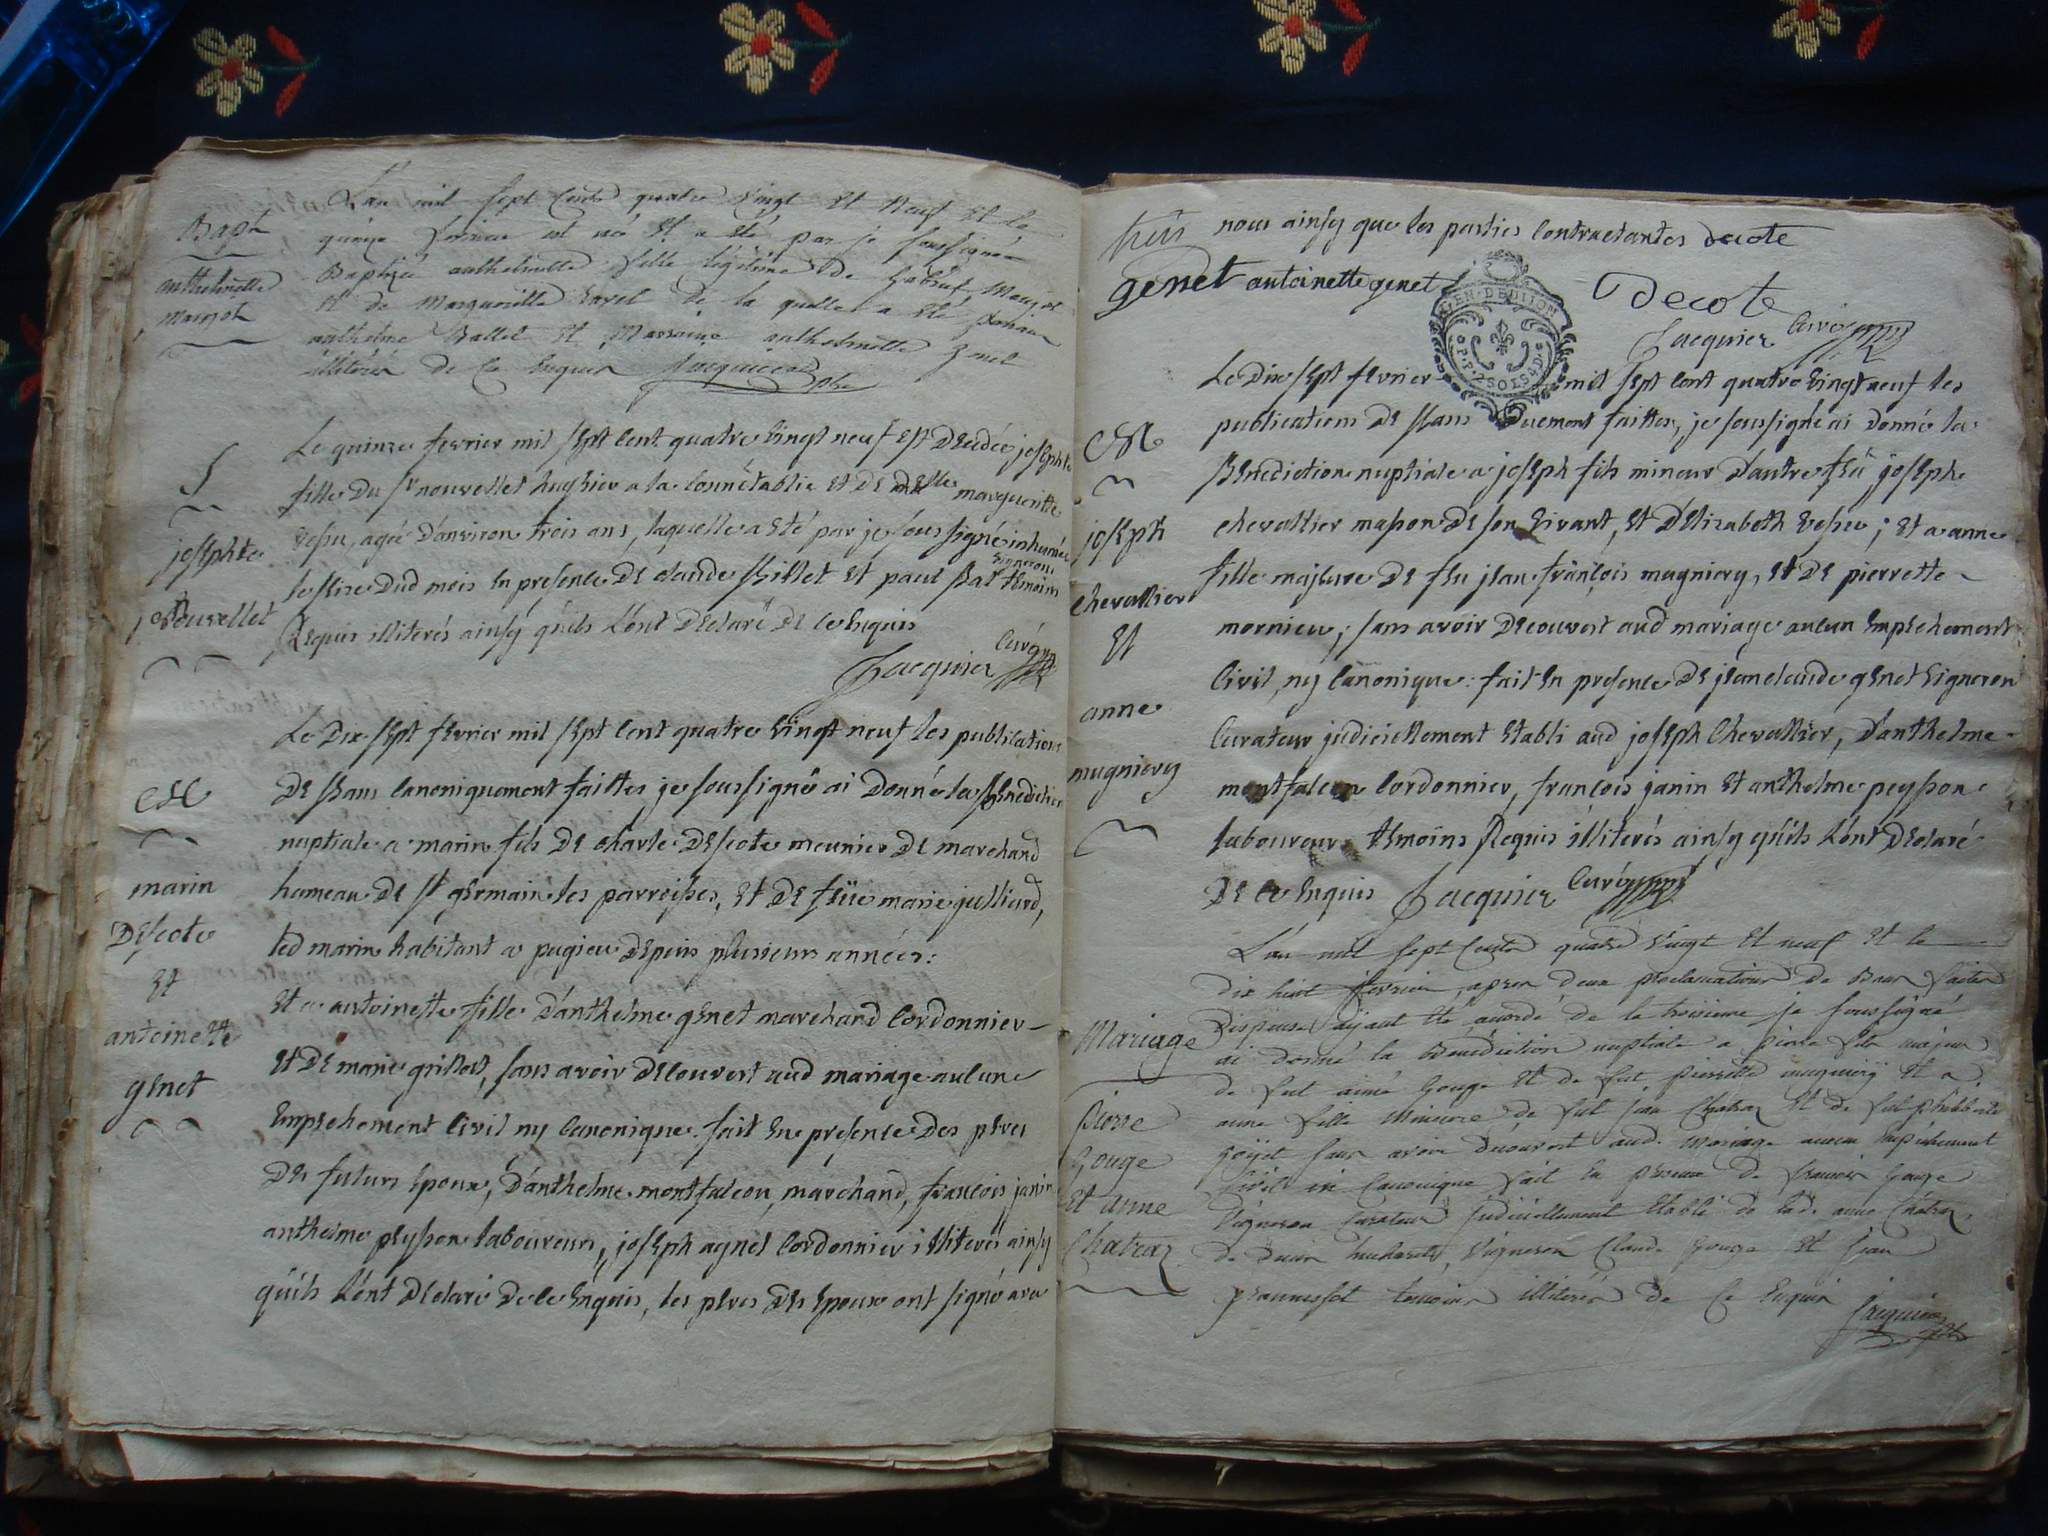 Bapt
anthelmette
mainot
L'an mil sept cents quatre vingt et neuf et le
quinze fevrier est née et a été par je soussigné
Baptizée anthelmette fille légitime de
et de Marguerite de la quelle a été parain
anthelme Ballet et Marraine anthelmette
illitérés de ce enquis Jacquier
S
josephte
Nouvellet
Le quinze fevrier mil sept cent quatre vingt neuf est decedée josephte
fille du Sr nouvellet huissier a la connétablie et de delle marguerite
vessu, agée d'environ trois ans, laquelle a été par je soussigné inhumée
le seize dud mois en presence de claude Billet et paul Bal vignerons témoins
Requis illiterés ainsy qu'ils l'ont declaré de ce enquis
Jacquier Curé
M
marin
Descote
et
antoinette
genet
Le dix sept fevrier mil sept cent quatre vingt neuf les publications
de Bans canoniquement faittes je soussigné ai donné la Benediction
nuptiale a marin fils de charle descote meunier de marchand
hameau de st germain les parroisses, et de füe marie julliard,
led marin habitant a pugieu depuis plusieurs années:
et a antoinette fille d'anthelme genet marchand cordonnier
et de marie grillot, sans avoir decouvert aud mariage aulcun
empechement civil ny canonique. fait en presence des peres
des futurs epoux, d'anthelme montfalcon, marchand, françois janin
anthelme peysson laboureurs, joseph agniel cordonnier illiterés ainsy
qu'ils l'ont declaré de ce enquis, les peres des epoux ont signé avec
nous ainsy que les parties contractantes decote
genet antoinette genet
GEN. DE DIJON
P.P. 2 SOLS 4 D.
Decote
Jacquier Curé
M
joseph
chevallier
et
anne
mugniery
Le Dix sept fevrier mil sept cent quatre vingt neuf les
publications de Bans duement faittes, je soussigné ai donné la
Benediction nuptiale a joseph fils mineur d'autre feü joseph
chevallier masson de son vivant, et d'elizabeth vessu; et a anne
fille majeure de feu jean françois mugniery, et de pierrette
mornieu; sans avoir decouvert aud mariage aucun empechement
civil, ny canonique: fait en presence de jean claude genet vigneron
curateur judiciellement etabli aud joseph chevallier, d'anthelme
montfalcon cordonnier, françois janin et anthelme peysson
laboureurs temoins Requis illiterés ainsy qu'ils l'ont declaré
de ce enquis Jacquier Curé
Mariage
pierre
Gouge
et anne
Chatraz
L'an mil sept cents quatre vingt et neuf et le
dix huit fevrier, apres deux proclamations de Bans faites
dispense ayant été accordé de la troisieme je soussigné
ai donné la Bénédiction nuptiale a pierre fils majeur
de fut aimé Gouge et de fut pierrette mugniery et a
anne fille Mineure de fut jean Chatraz et de fut philiberte
goyet sans avoir decouvert aud. Mariage aucun empéchement
civil ni Canonique fait en presence de francois Gouge
vigneron curateur judiciellement etabli de lad. anne Chatraz,
de vigneron Claude Gouge et jean
temoins illitérés de ce enquis Jacquier